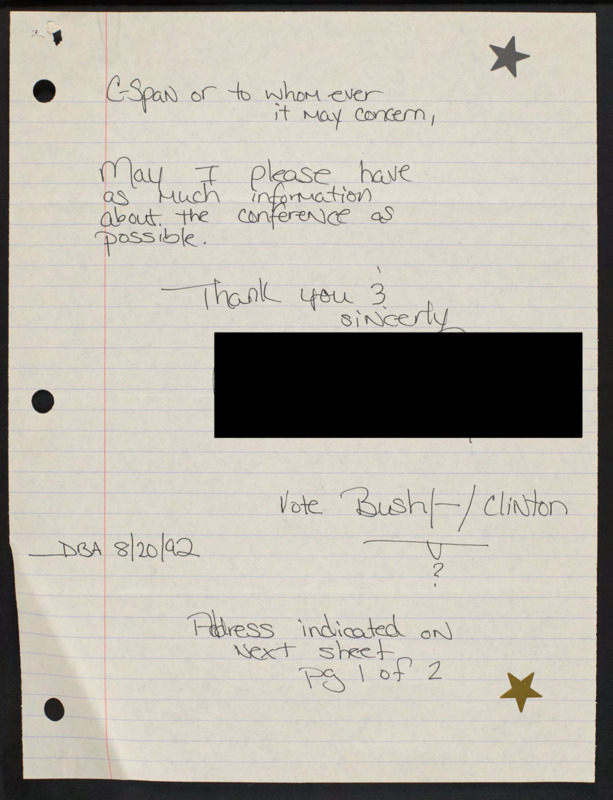 C-Span or to whom ever
it may concern,
May I please have
as much information
about the conference as
possible.
Thank you &
sincerly
Vote Bush/-/Clinton
?
DBA 8/20/92
Address indicated on
Next sheet
pg 1 of 2